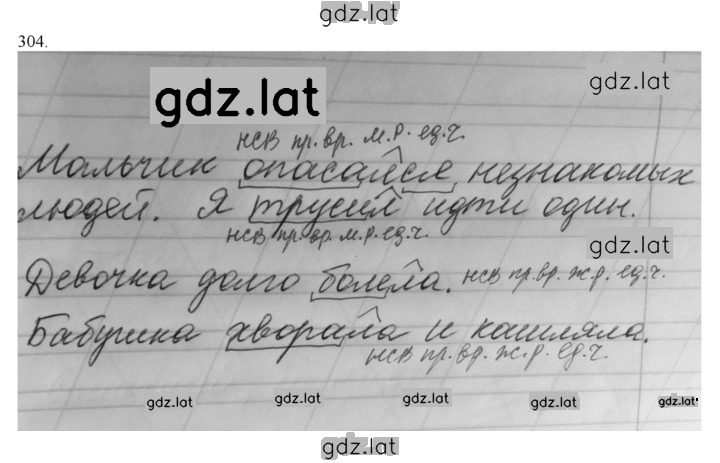 gdz.lat
304.
gdz.lat
gdz.lat
нсв пр.вр. м.р. ед.ч.
Мальчик опасался незнакомых
людей. Я трусил идти один.
нсв пр.вр. м.р. ед.ч.
gdz.lat
Девочка долго болела. нсв пр.вр. ж.р. ед.ч.
Бабушка хворала и кашляла.
нсв пр.вр. ж.р. ед.ч.
gdz.lat gdz.lat gdz.lat gdz.lat gdz.lat
gdz.lat